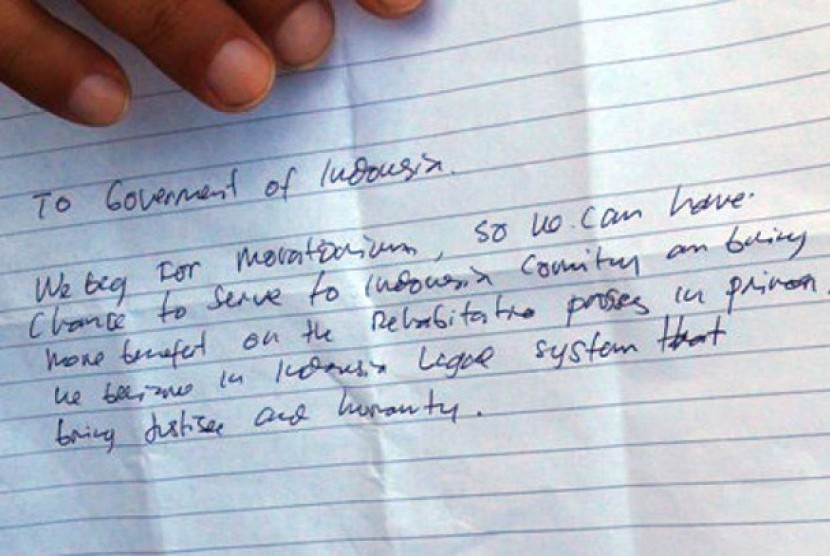 To Goverment of Indonesia.
We beg For moratorium, so we can have
Chance to Serve to Indonesia Comunity an bring
more benefert on the Rehabilitatio proses in prison.
We beleive in Indonesia Legal system that
bring Justise and humanty.